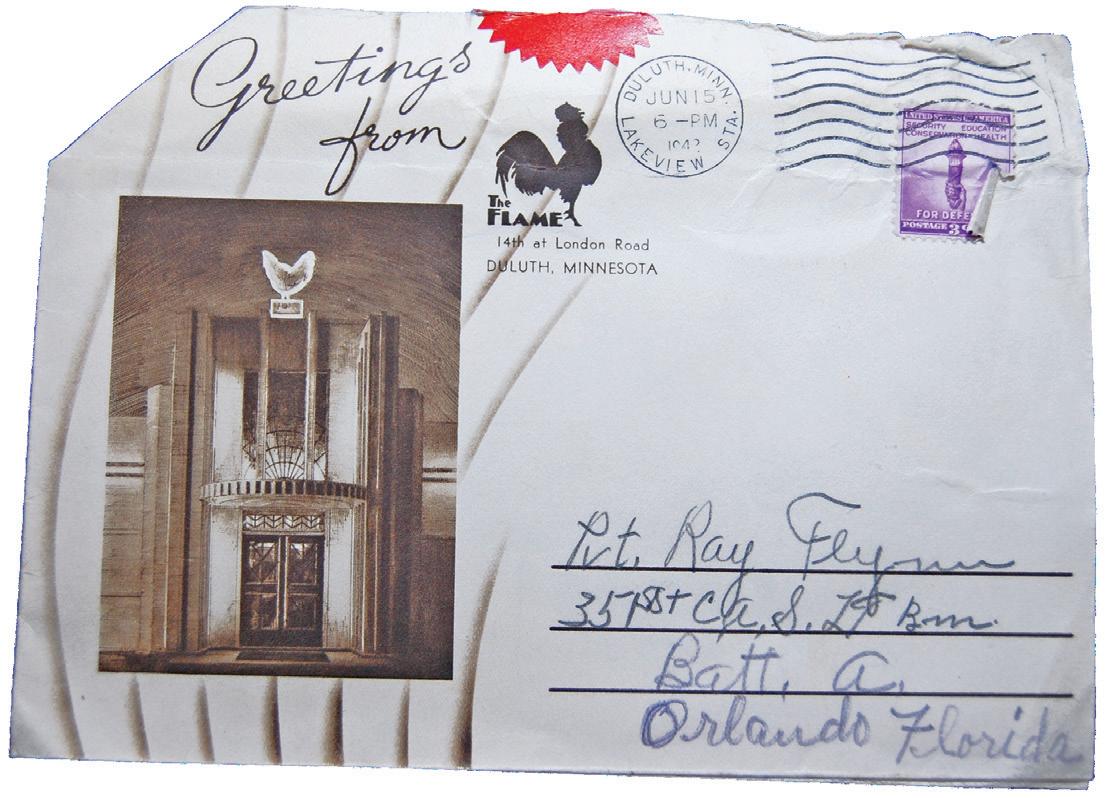 Greetings
from
The
FLAME
14th at London Road
DULUTH, MINNESOTA
DULUTH, MINN.
JUN 15
6 -PM
1942
LAKEVIEW STA.
UNITED STATES OF AMERICA
SECURITY EDUCATION
CONSERVATION HEALTH
FOR DEFE
POSTAGE 3¢
Pvt. Ray Flynn
351st C.A. S. Lt Bm.
Batt. A.
Orlando Florida